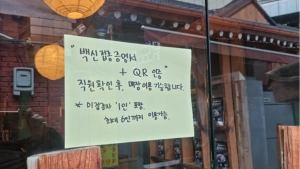 "백신접종증명서
+ QR 인증"
직원확인 후, 매장이용 가능합니다.
* 미접종자 '1인' 포함,
최대 6인까지 이용가능.